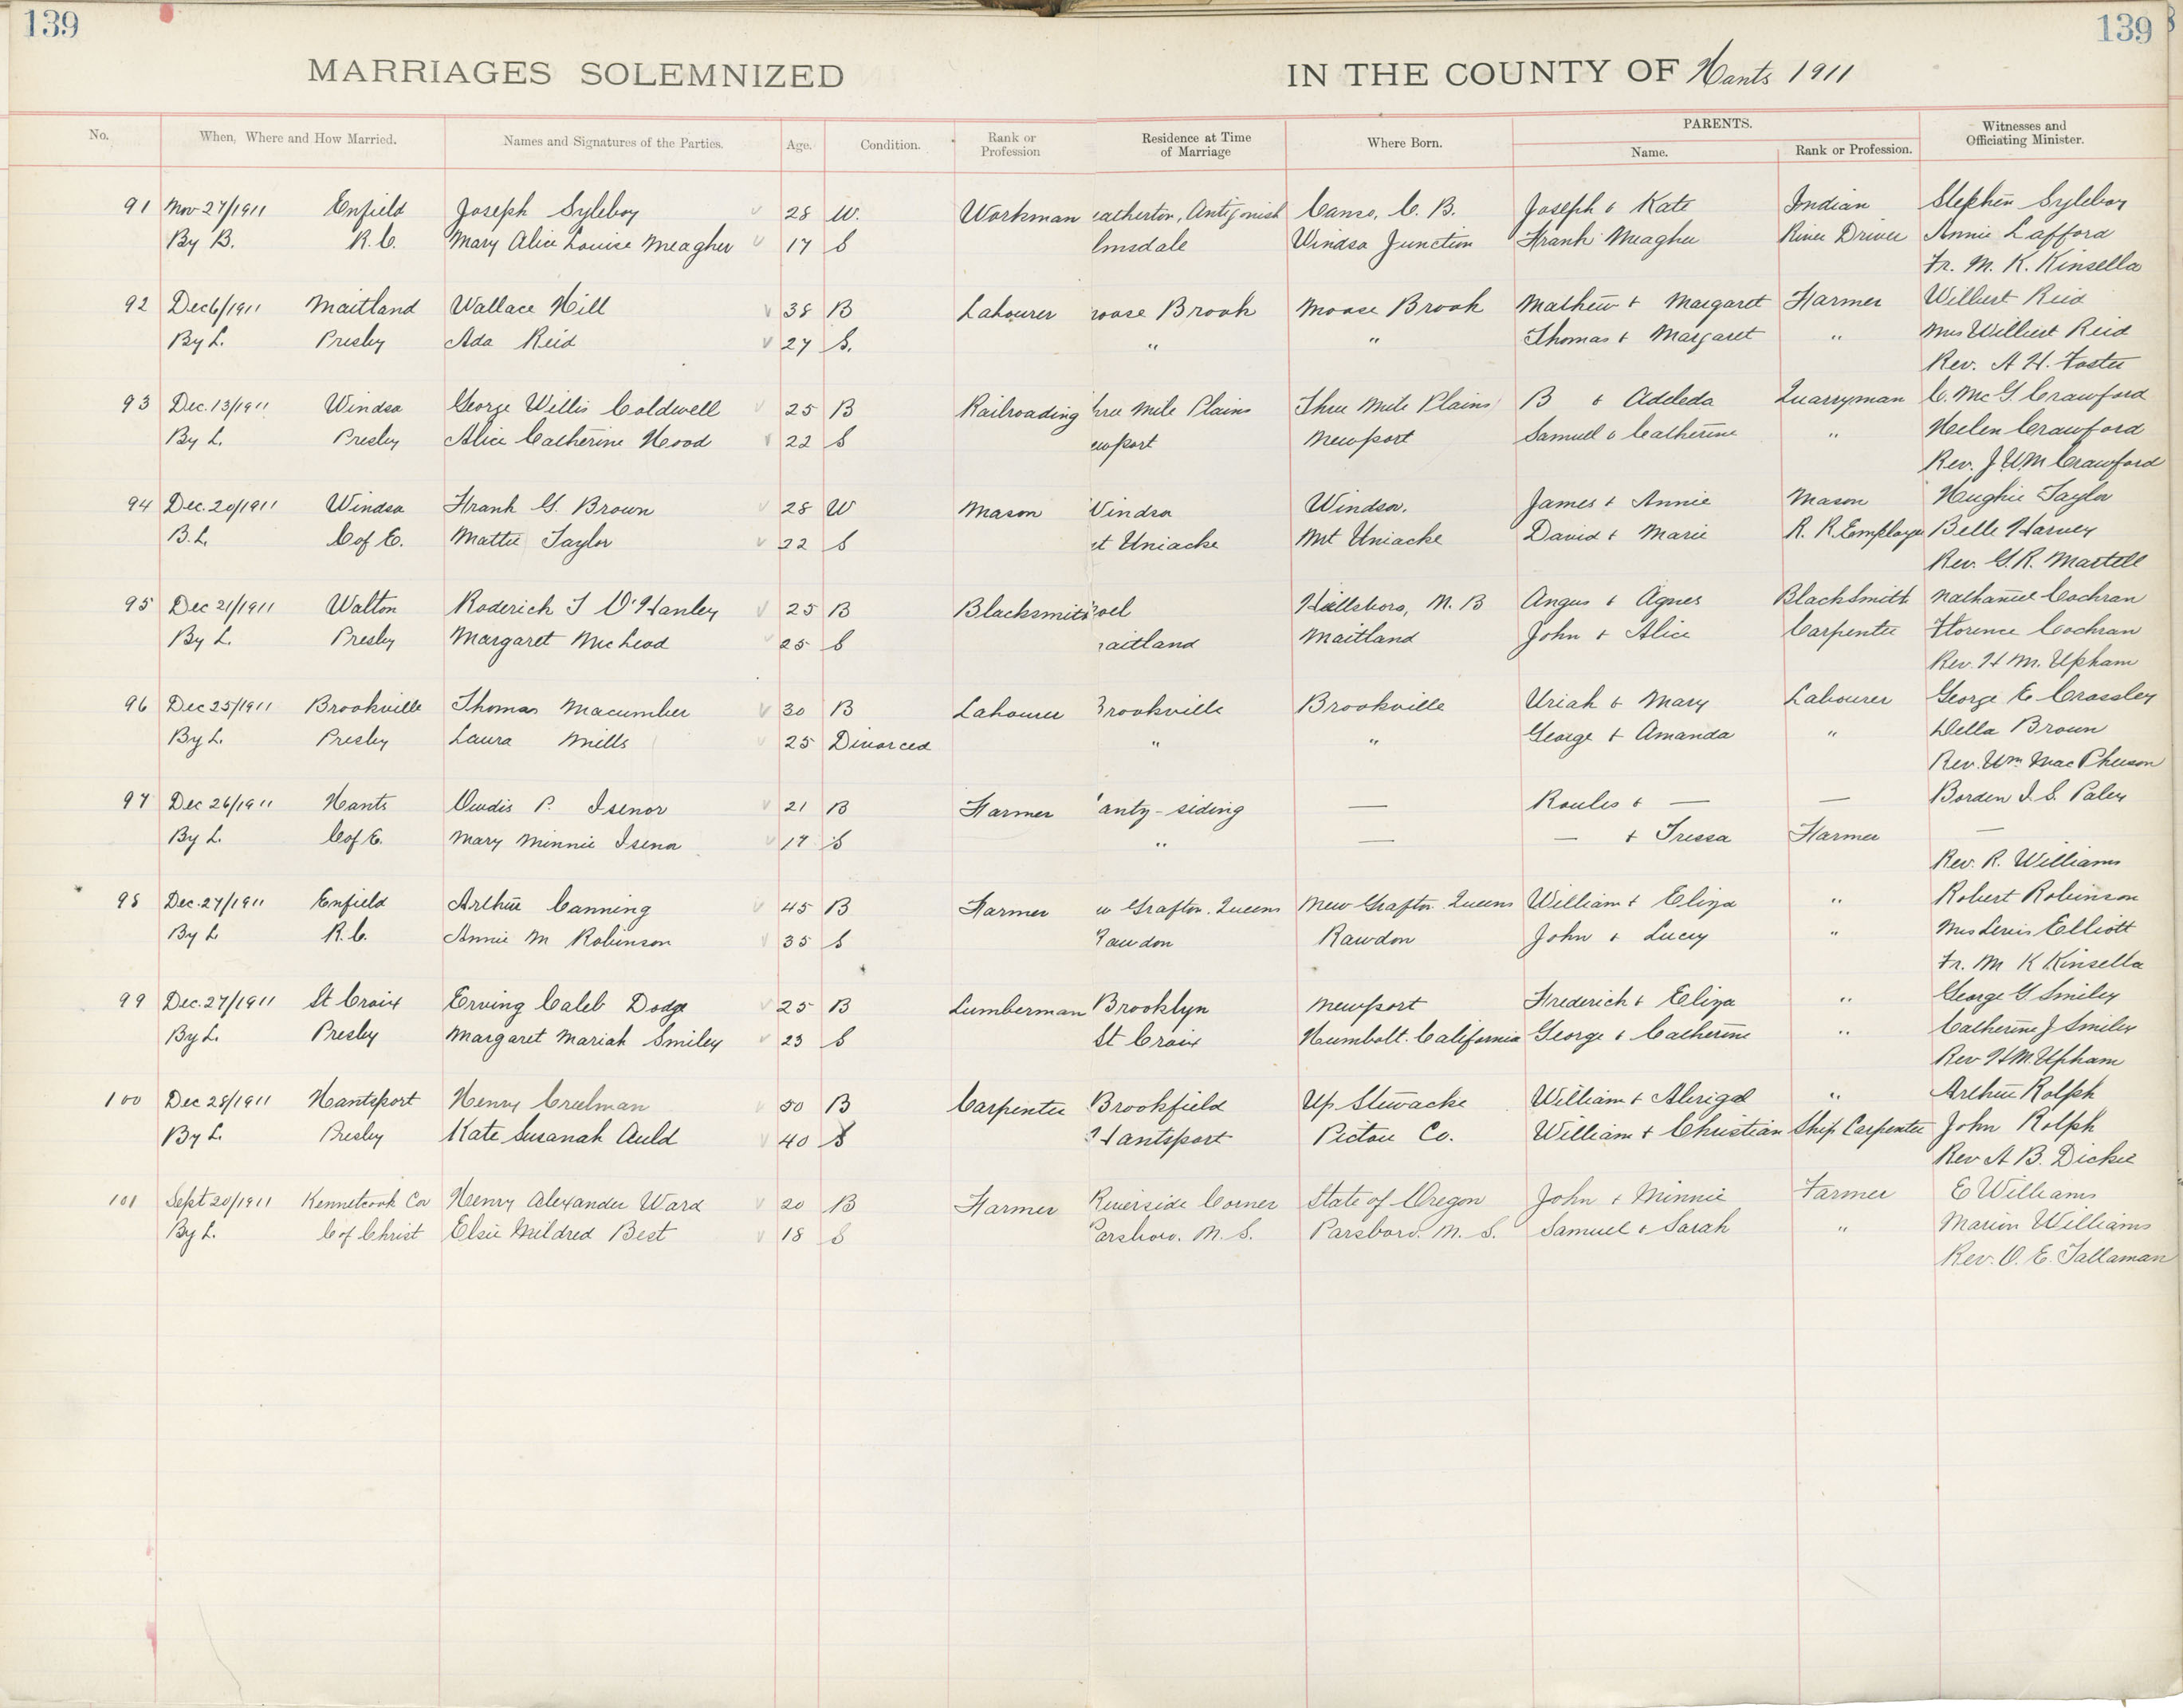 139 139
MARRIAGES SOLEMNIZED IN THE COUNTY OF Hants 1911
No. When, Where and How Married. Names and Signatures of the Parties. Age. Condition. Rank or Profession Residence at Time of Marriage Where Born. PARENTS. Name. Rank or Profession. Witnesses and Officiating Minister.
91 Nov 27/1911 Enfield Joseph Syleboy 28 W. Workman eatherton, Antigonish Canso, C. B. Joseph & Kate Indian Stephen Syleboy
By B. R.C. Mary Alice Louise Meagher 17 S lmsdale Windsor Junction Frank Meagher River Driver Annie Lafford
Fr. M. K. Kinsella
92 Dec 6/1911 Maitland Wallace Hill 38 B Labourer oose Brook Moose Brook Mathew & Margaret Farmer Wilbert Reid
By L. Presby Ada Reid 27 S. " " Thomas & Margaret " Mrs Wilbert Reid
Rev. A H. Foster
93 Dec. 13/1911 Windsor George Willis Coldwell 25 B Railroading hree Mile Plains Three Mile Plains B & Adeleda Quarryman C. McG. Crawford
By L. Presby Alice Catherine Wood 22 S ewport Newport Samuel & Catherine " Helen Crawford
Rev. J. W. M Crawford
94 Dec. 20/1911 Windsor Frank G. Brown 28 W Mason Windsor Windsor. James & Annie Mason Hughie Taylor
B.L. C of E. Mattie Taylor 22 S t Uniacke Mt Uniacke David & Marie R. R. Employe Belle Harvey
Rev. G. R. Martell
95 Dec 21/1911 Walton Roderick J O'Hanley 25 B Blacksmith oel Hillsboro, N. B Angus & Agnes BlackSmith Nathaniel Cochran
By L. Presby Margaret McLeod 25 S aitland Maitland John & Alice Carpenter Florence Cochran
Rev. H M. Upham
96 Dec 25/1911 Brookville Thomas Macumber 30 B Labourer Brookville Brookville Uriah & Mary Labourer George E Crossley
By L. Presby Laura Mills 25 Divorced " " George & Amanda " Della Brown
Rev. Wm. MacPherson
97 Dec 26/1911 Hants P. Isenor 21 B Farmer anty-siding — Roules & — — Borden I. S. Paley
By L. C of E. Mary Minnie Isenor 17 S " — — & Tressa Farmer —
Rev. R. Williams
98 Dec. 27/1911 Enfield Arthur Canning 45 B Farmer w Grafton. Queens New Grafton Queens William & Eliza " Robert Robinson
By L R.C. Annie M Robinson 35 S Rawdon Rawdon John & Lucy " Mrs Lewis Elliott
Fr. M K Kinsella
99 Dec. 27/1911 St Croix Erving Caleb Dodge 25 B Lumberman Brooklyn Newport Frederick & Eliza " George G Smiley
By L. Presby Margaret Mariah Smiley 23 S St Croix Humbolt. California George & Catherine " Catherine J Smiley
Rev H M. Upham
100 Dec 28/1911 Hantsport Henry Creelman 50 B Carpenter Brookfield Up Stewacke William & Abrigal " Arthur Rolph
By L. Presby Kate Susanah Auld 40 S Hantsport Pictou Co. William & Christian Ship Carpenter John Rolph
Rev A B. Dickie
101 Sept 20/1911 Kennetcook Cor Henry Alexander Ward 20 B Farmer Riverside Corner State of Oregon John & Minnie Farmer E Williams
By L. C of Christ Elsie Mildred Best 18 S Parsboro. N. S. Parsboro. N. S. Samuel & Sarah " Marion Williams
Rev. O. E. Tallaman